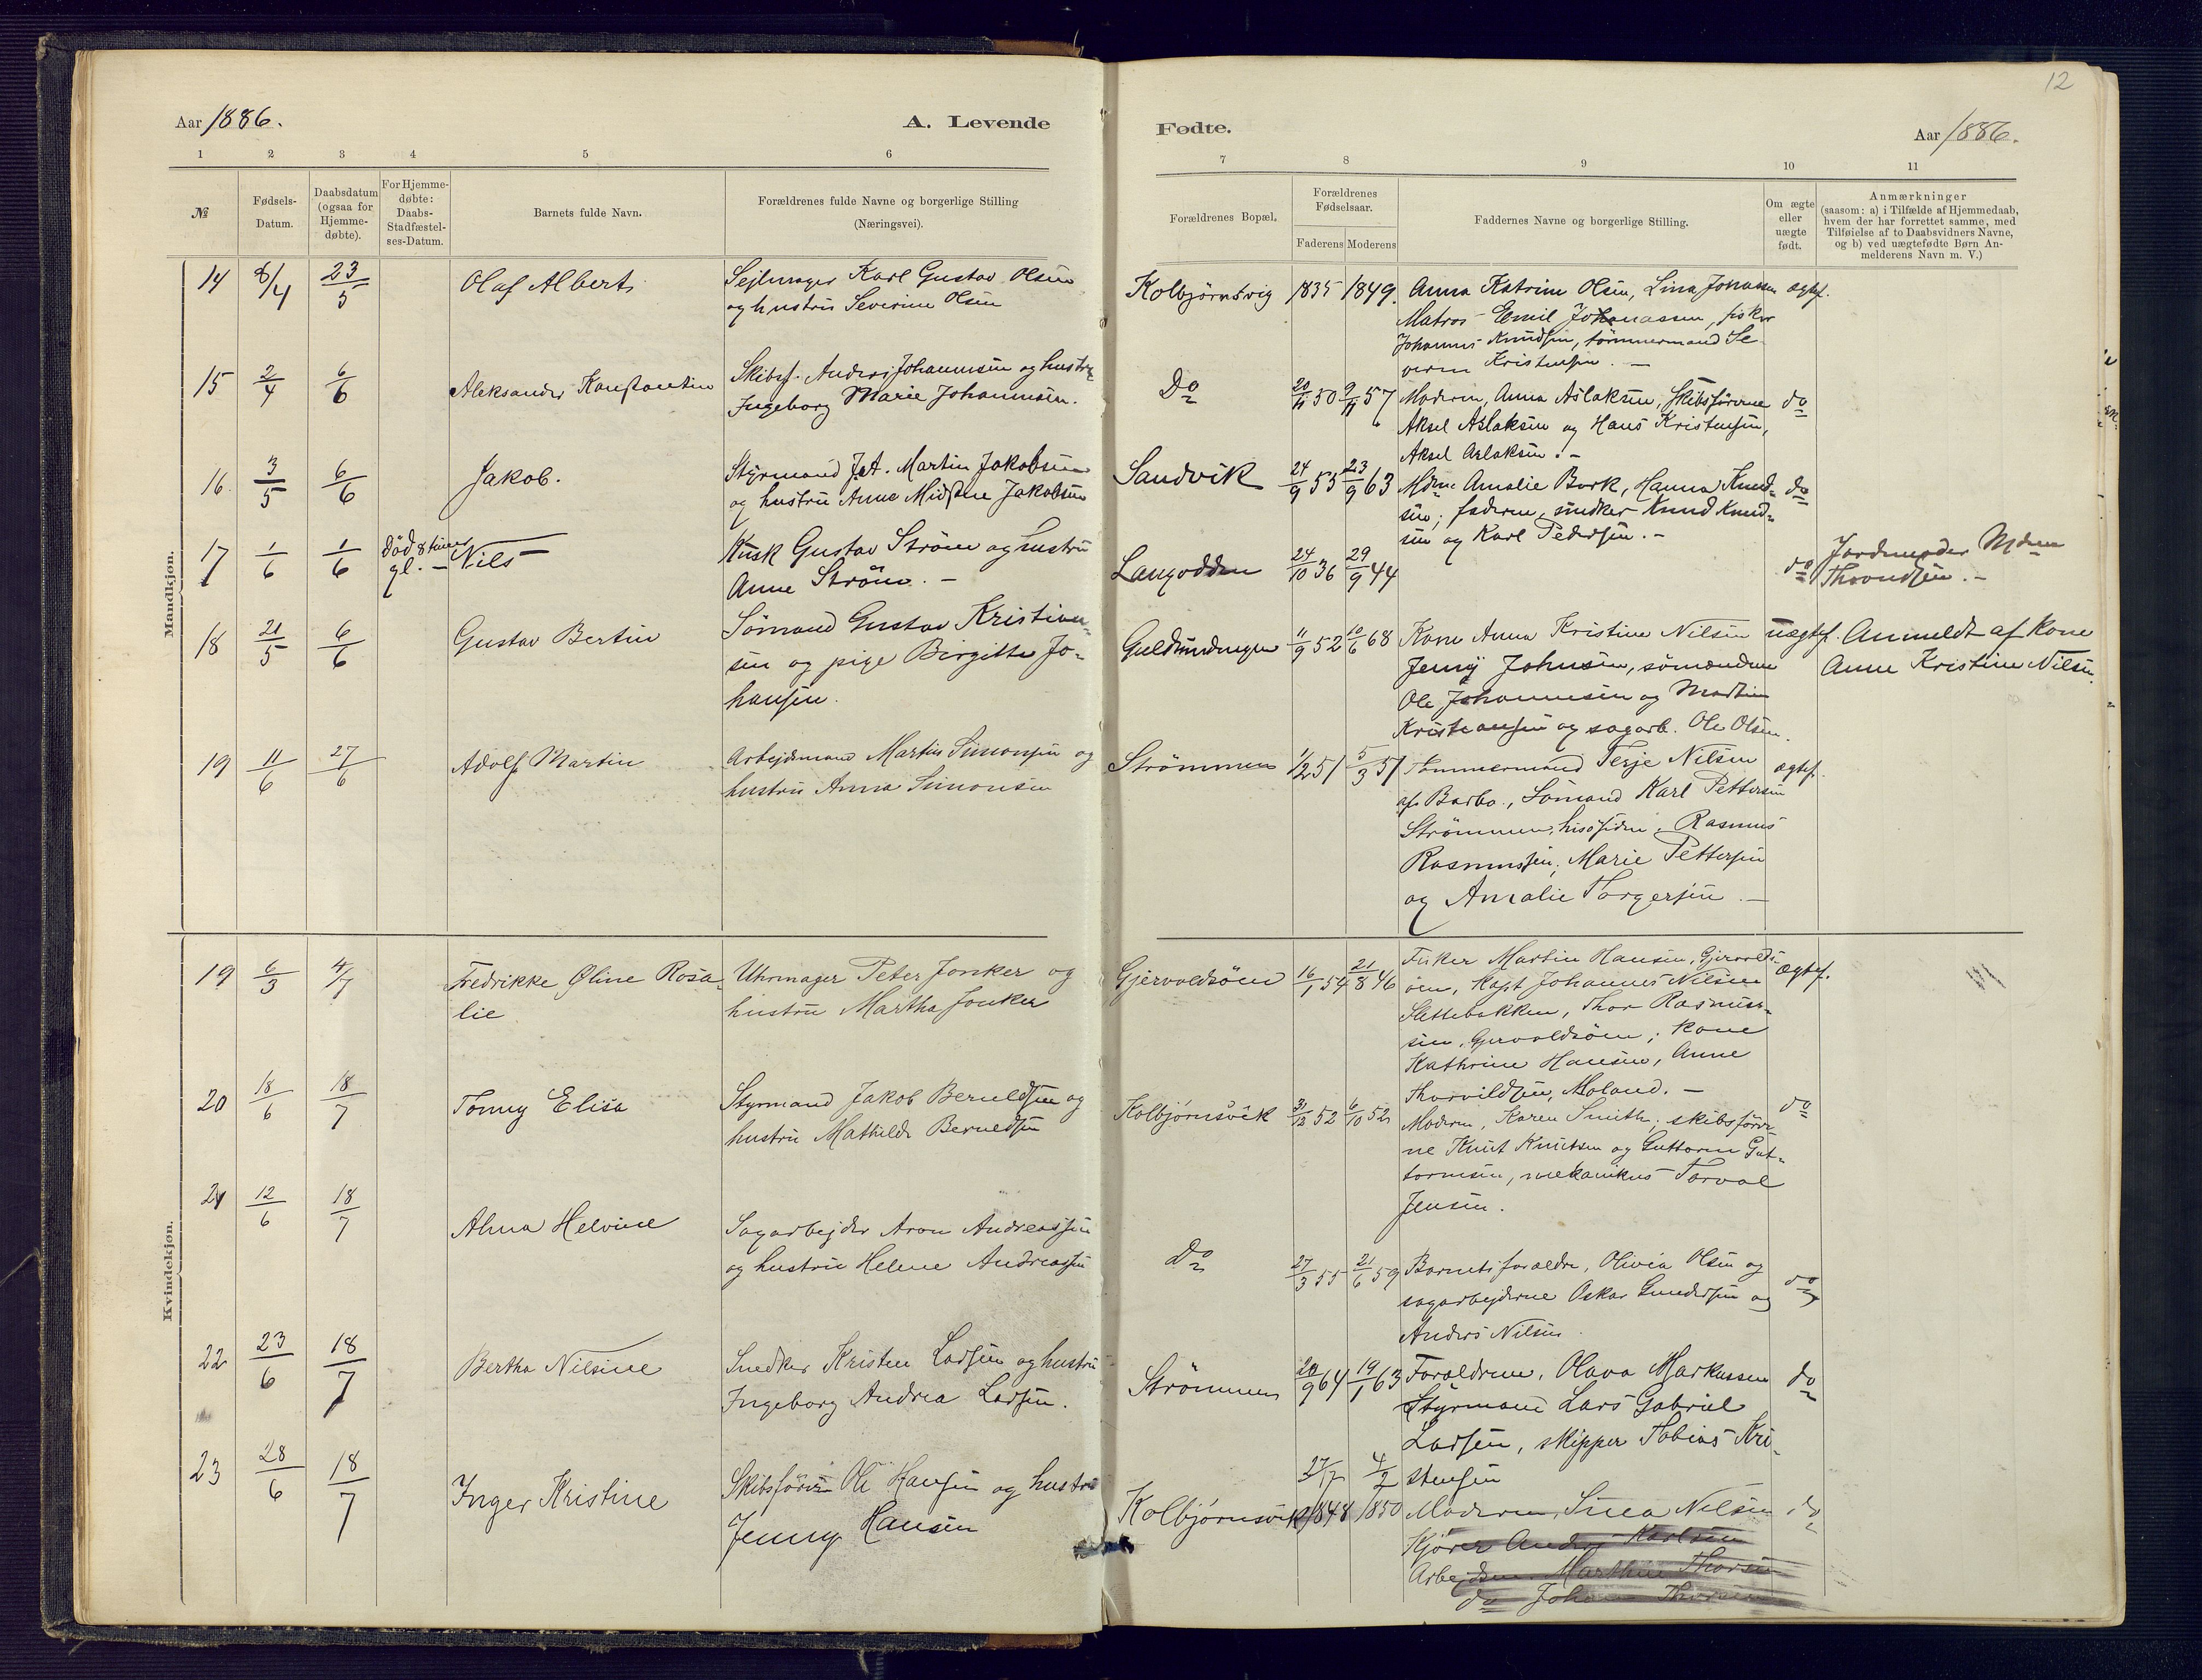 12
Aar 1886.
A. Levende
Fødte.
Aar 1886.
1 2 3 4 5 6
7 8 9 10 11
№
Fødsels-
Datum.
Daabsdatum
(ogsaa for
Hjemme-
døbte).
For Hjemme-
døbte:
Daabs-
Stadfæstel-
ses-Datum.
Barnets fulde Navn.
Forældrenes fulde Navne og borgerlige Stilling
(Næringsvei).
Forældrenes Bopæl.
Forældrenes
Fødselsaar.
Faderens Moderens
Faddernes Navne og borgerlige Stilling.
Om ægte
eller
uægte
født.
Anmærkninger
(saasom: a) i Tilfælde af Hjemmedaab,
hvem der har forrettet samme, med
Tilføielse af to Daabsvidners Navne,
og b) ved uægtefødte Børn An-
melderens Navn m. V.)
Mandkjøn.
14 8/4 23/5 Olaf Albert
Sejlmager Karl Gustav Olsen
og hustru Severine Olsen
Kolbjörnsvig 1835 1849.
Anna Katrine Olsen, Lina Jonassen
Matros Emil Johnassen, fisker
Johannes Knudsen, tömmermand Se
verin Kristensen. —
ægtef.
15 2/4 6/6 Aleksander Konstantin
Skibsf. Anders Johannesen og hustru
Ingeborg Marie Johannesen.
Do 20/11 50 9/11 57
Moderen, Anna Aslaksen, Skibsförerne
Aksel Aslaksen og Hans Kristensen,
Aksel Aslaksen. —
do
16. 3/5 6/6 Jakob.
Styrmand Jat. Martin Jakobsen
og hustru Anne Midstue Jakobsen
Sandvik 24/9 55 23/9 63
Mdme Amalie Bork, Hanna Knud-
sen; faderen, snedker Knud Knud-
sen og Karl Pedersen. —
do
17 1/6 1/6 Död 8 timer
gl. — Nils
Kusk Gustav Ström og hustru
Anne Ström. —
Langodden 24/10 36 29/9 44
do
Jordmoder Mdme
Thronsen. —
18 21/5 6/6 Gustav Bertin
Sömand Gustav Kristian-
sen og pige Birgitte Jo-
hansen.
Guldsmedengen 11/9 52 10/6 68
Kone Anna Kristine Nilsen
Jenny Johnsen, sömændene
Ole Johannesen og Martin
Kristiansen og sagarb. Ole Olsen.
uægtef.
Anmeldt af kone
Anne Kristine Nilsen.
19 11/6 27/6 Adolf Martin
Arbejdsmand Martin Simonsen og
hustru Anna Simonsen
Strömmen 1/2 51 5/3 51
Tömmermand Terje Nilsen
af Barbo, Sömand Karl Pettersen
Strömmen, hisösiden, Rasmus
Rasmussen, Marie Pettersen
og Amalie Torgersen. —
ægtef.
Kvindekjøn.
19 6/3 4/7 Fredrikke Oline Rosa-
lie
Uhrmager Peter Jonker og
hustru Martha Jonker
Gjervoldsöen 16/1 54 21/8 46
Fisker Martin Hansen, Gjervolds-
öen, Kapt Johannes Nilsen
Slettebakken, Thor Rasmus-
sen, Gjervoldsöen; kone
Kathrine Hansen, Anne
Thorvildsen, Moland. —
ægtef.
20 18/6 18/7 Tonny Elisa
Styrmand Jakob Berneldsen og
hustru Mathilde Berneldsen
Kolbjørnsvik 31/12 52 6/10 52
Moderen, Karen Smith, skibsförer-
ne Knut Knutsen og Guttorm Gut-
tormsen, mekanikus Torval
Jensen.
do
21 12/6 18/7 Alma Helvine
Sagarbejder Aron Andreassen
og hustru Helene Andreassen
Do 27/3 55 21/6 59
Barnets forældre, Olivia Olsen og
sagarbejderne Oskar Gundersen og
Anders Nilsen.
do
22 23/6 18/7 Bertha Nilsine
Snedker Kristen Larsen og hustru
Ingeborg Andrea Larsen.
Strömmen 20/9 64 19/1 63
Forældrene, Olava Markussen
Styrmand Lars Gabriel
Larsen, skipper Tobias Kri-
stensen
do
23 28/6 18/7 Inger Kristine
Skibsförer Ole Hansen og hustru
Jenny Hansen
Kolbjørnsvik 27/7 1848 4/2 1850
Moderen, Sina Nilsen
Kjører Anders Karlsen
Arbejdsm. Marthin Thorsen
do Johan
do